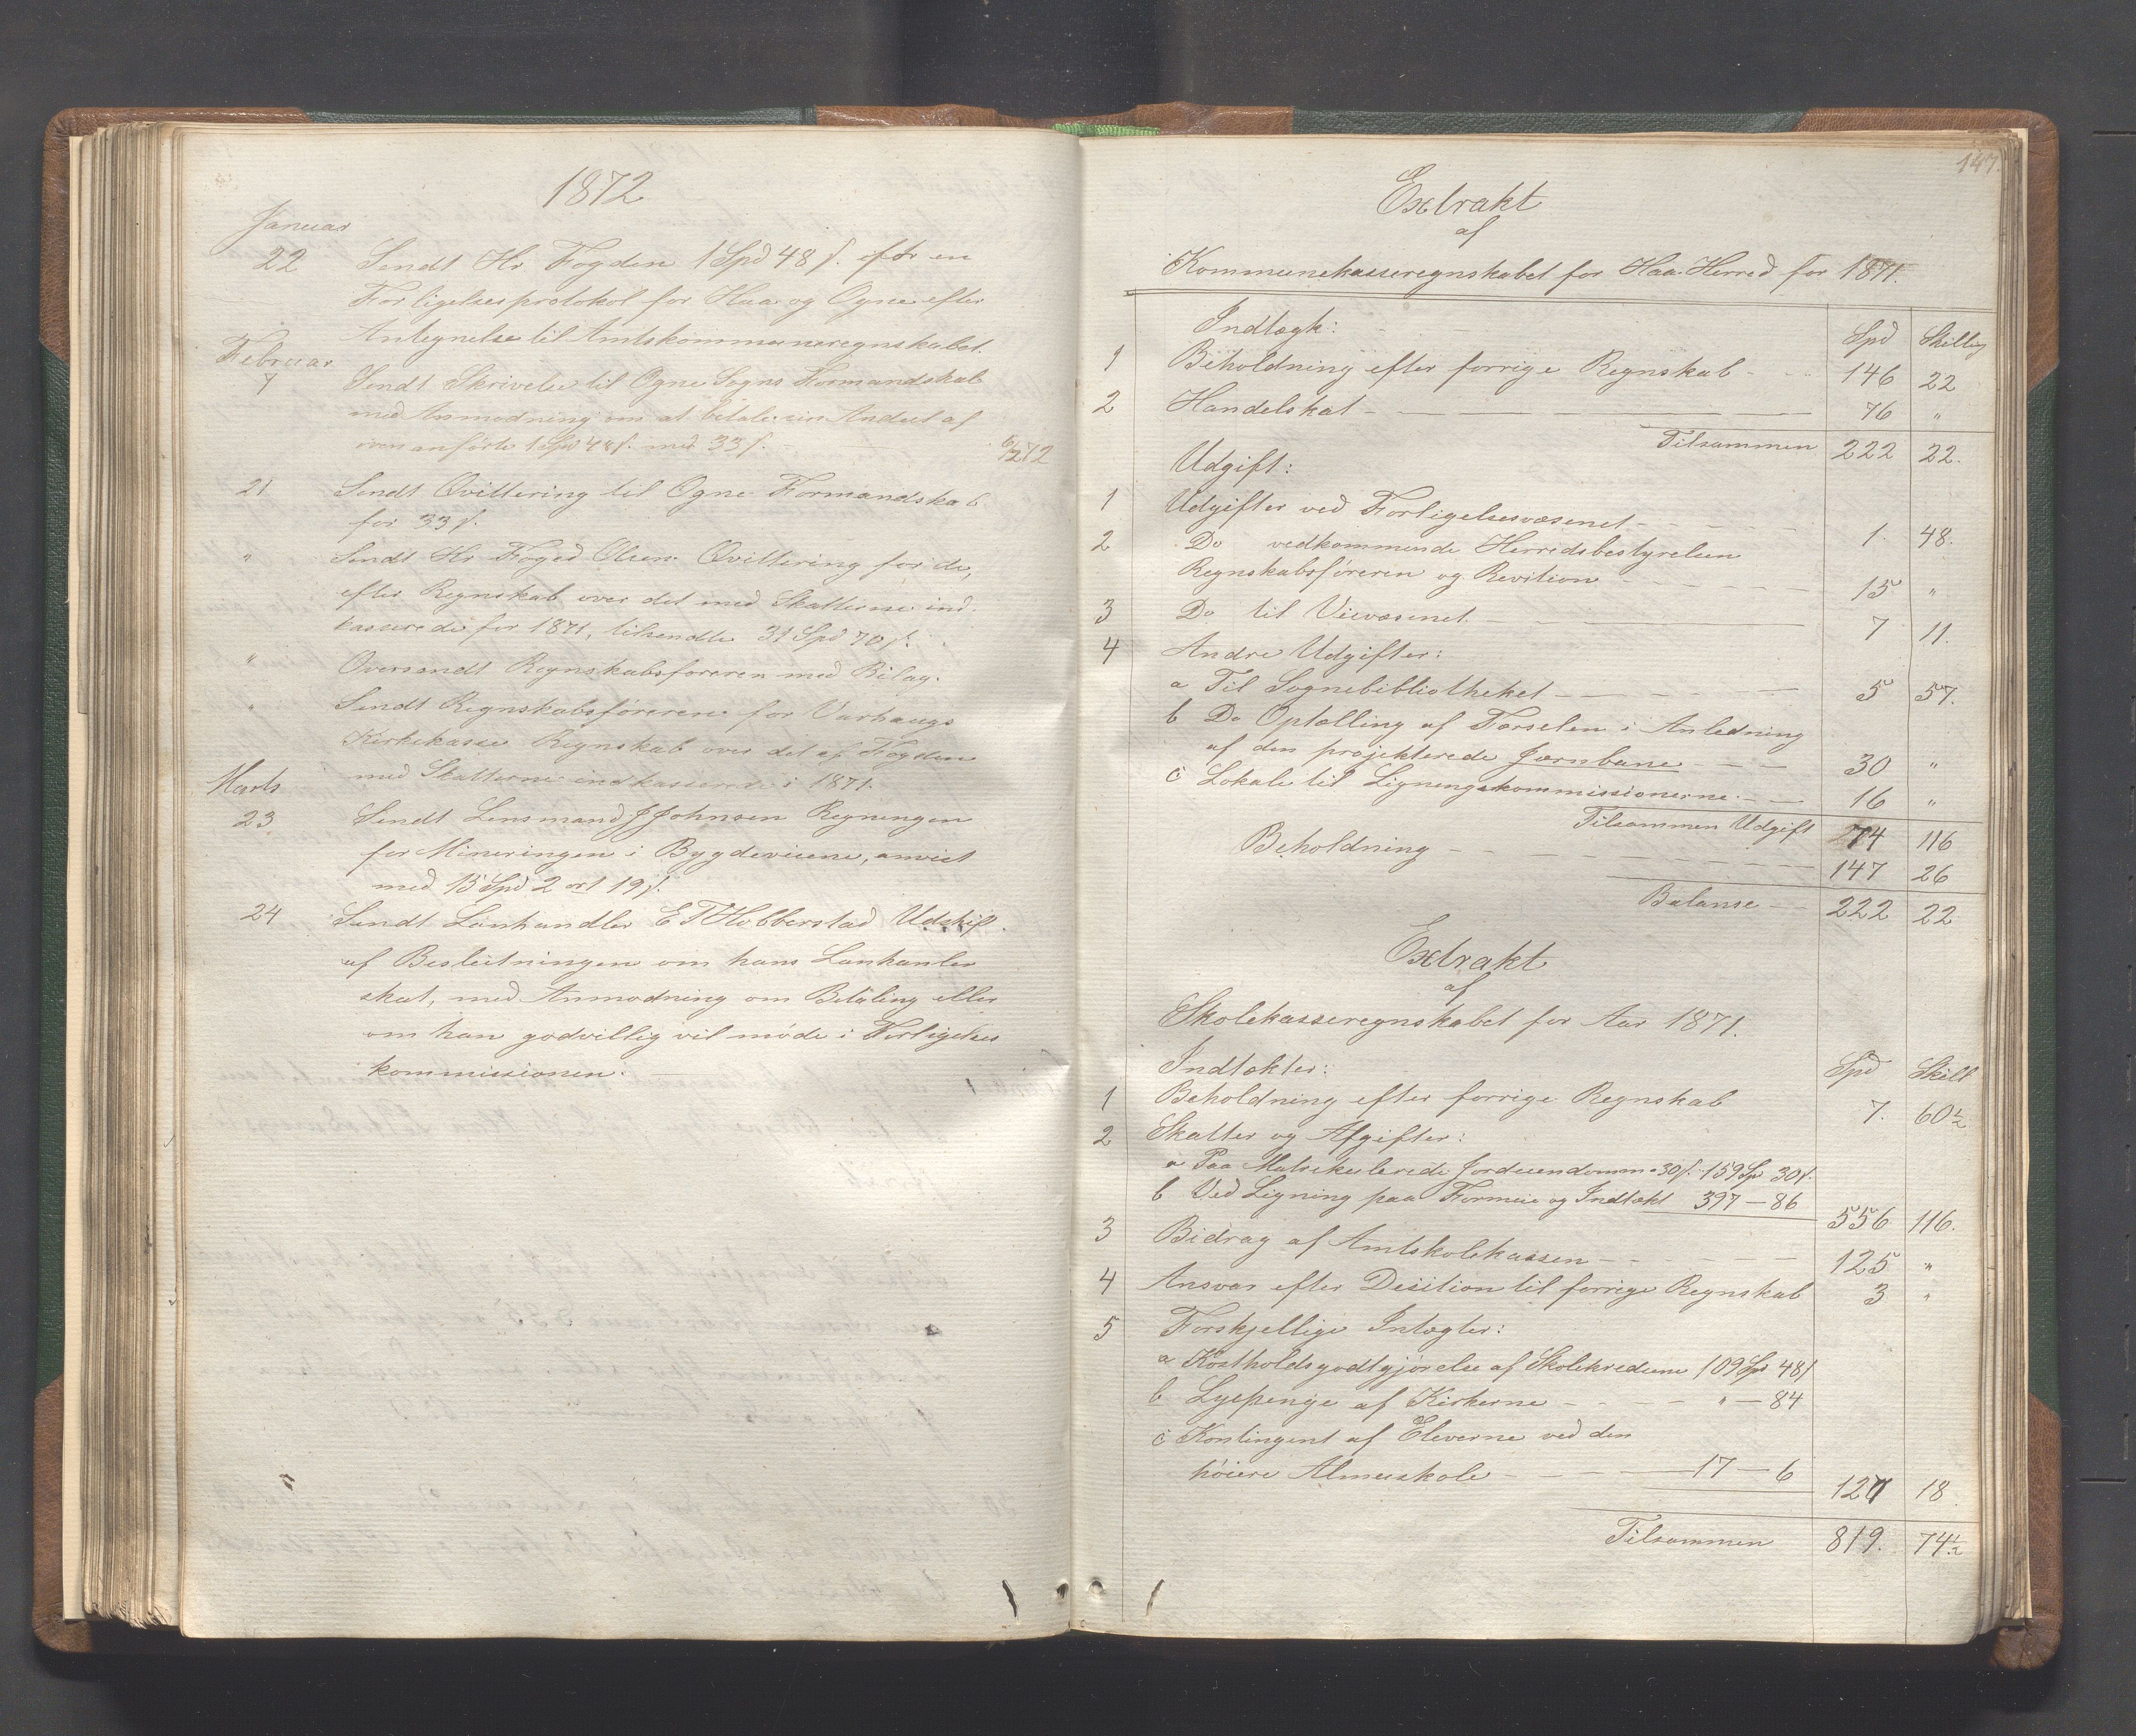 1872
Januar
22 Sendt Hr Fogden 1 Spd 48 s. for en
Forligelsesprotokol for Haa og Ogne efter
Antegnelse til Amtskommuneregnskabet.
Februar
7 Sendt Skrivelse til Ogne Sogns Formandskab
med Anmodning om at betale sin Andeel af
ovenanførte 1 Spd 48 s. med 33 s.
21 Sendt Qvittering til Ogne Formandskab
for 33 s.
" Sendt Hr Foged Olsen Qvittering for de,
efter Regnskab over det med Skatterne ind-
kasserede for 1871, tilsendte 31 Spd 70 s.
" Oversendt Regnskabsføreren med Bilag.
" Sendt Regnskabsføreren for Varhaugs
Kirkekasse Regnskab over det af Fogden
med Skatterne indkasserede i 1871.
Marts
23 Sendt Lensmand J Johnsen Regningen
for Mineringen i Bygdeveiene, anvist
med 15 Spd 2 ort 19 s.
24 Sendt Lanhandler E T Hobberstad Udskift
af Beslutningen om hans Lanhanler
skat, med Anmodning om Betaling eller
om han godvillig vil møde i Forligelses
kommissionen.
147
Extrakt
af
Kommunekasseregnskabet for Haa Herred for 1871.
Indtægt: Spd Skilling
1 Beholdning efter forrige Regnskab 146 22
2 Handelskat 76 "
Tilsammen 222 22.
Udgift:
1 Udgifter ved Forligelsesvæsenet 1. 48.
2 Do vedkommende Herredsbestyrelsen
Regnskabsføreren og Revition 15 "
3 Do til Veivæsenet 7 11.
4 Andre Udgifter:
a Til Sognebibliotheket 5 57.
b Do Optælling af Færselen i Anledning
af den projekterede Jærnbane 30 "
c Lokale til Ligningskommissionerne 16 "
Tilsammen Udgift 74 116
Beholdning 147 26
Balanse 222 22
Extrakt
af
Skolekasseregnskabet for Aar 1871.
Indtækter: Spd Skill
1 Beholdning efter forrige Regnskab 7. 60½
2 Skatter og Afgifter:
a Paa Matrikulerede Jordeiendomme 30 s. 159 Sp 30 s.
b Ved Ligning paa Formue og Indtækt 397 — 86 556 116.
3 Bidrag af Amtskolekassen 125 "
4 Ansvar efter Desition til forrige Regnskab 3 "
5 Forskjellige Intægter:
a Kostholdsgodtgjørelse af Skolekredsene 109 Spd 48 s
b Lyspenge af Kirkerne " — 84
c Kontingent af Eleverne ved den
høiere Almueskole 17 — 6 127 18
Tilsammen 819. 74½